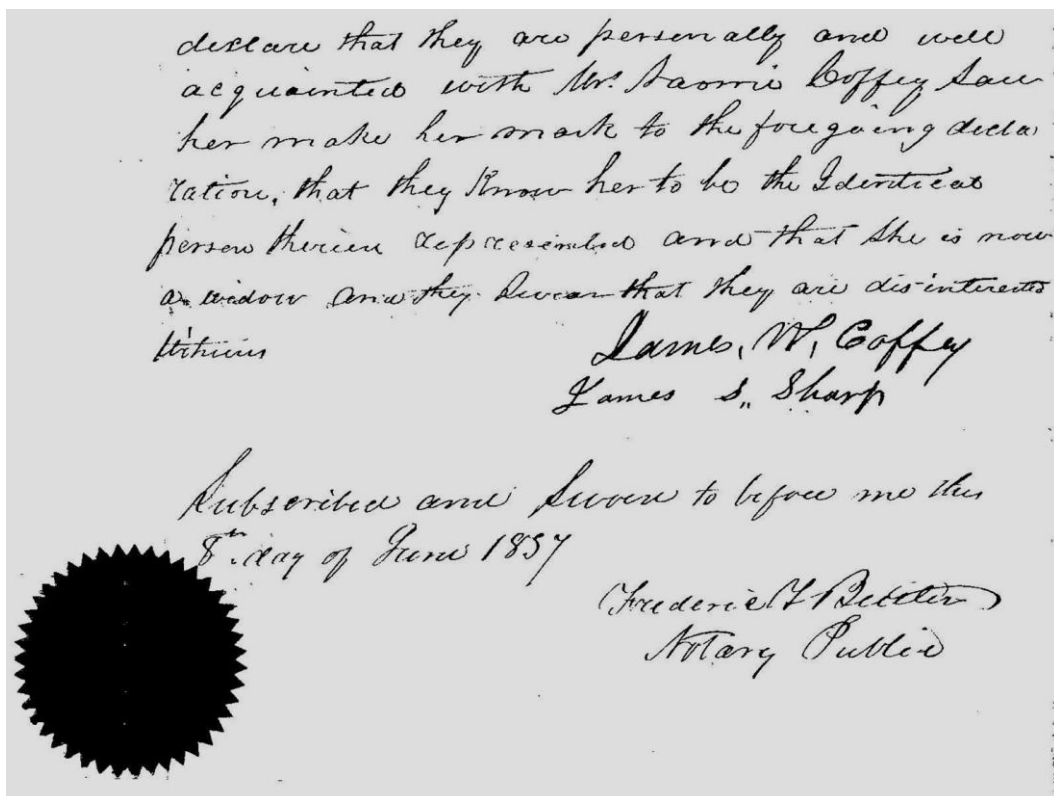 declare that they are personally and well
acquainted with Mrs. Naomie Coffey Saw
her make her mark to the foregoing decla
ration, that they Know her to be the Identical
person therien represented and that She is now
a widow and they Swear that they are disinterested
James, W, Coffey
James S,, Sharp
Subscribed and Sworn to before me this
8th day of June 1857
Frederic
Notary Public